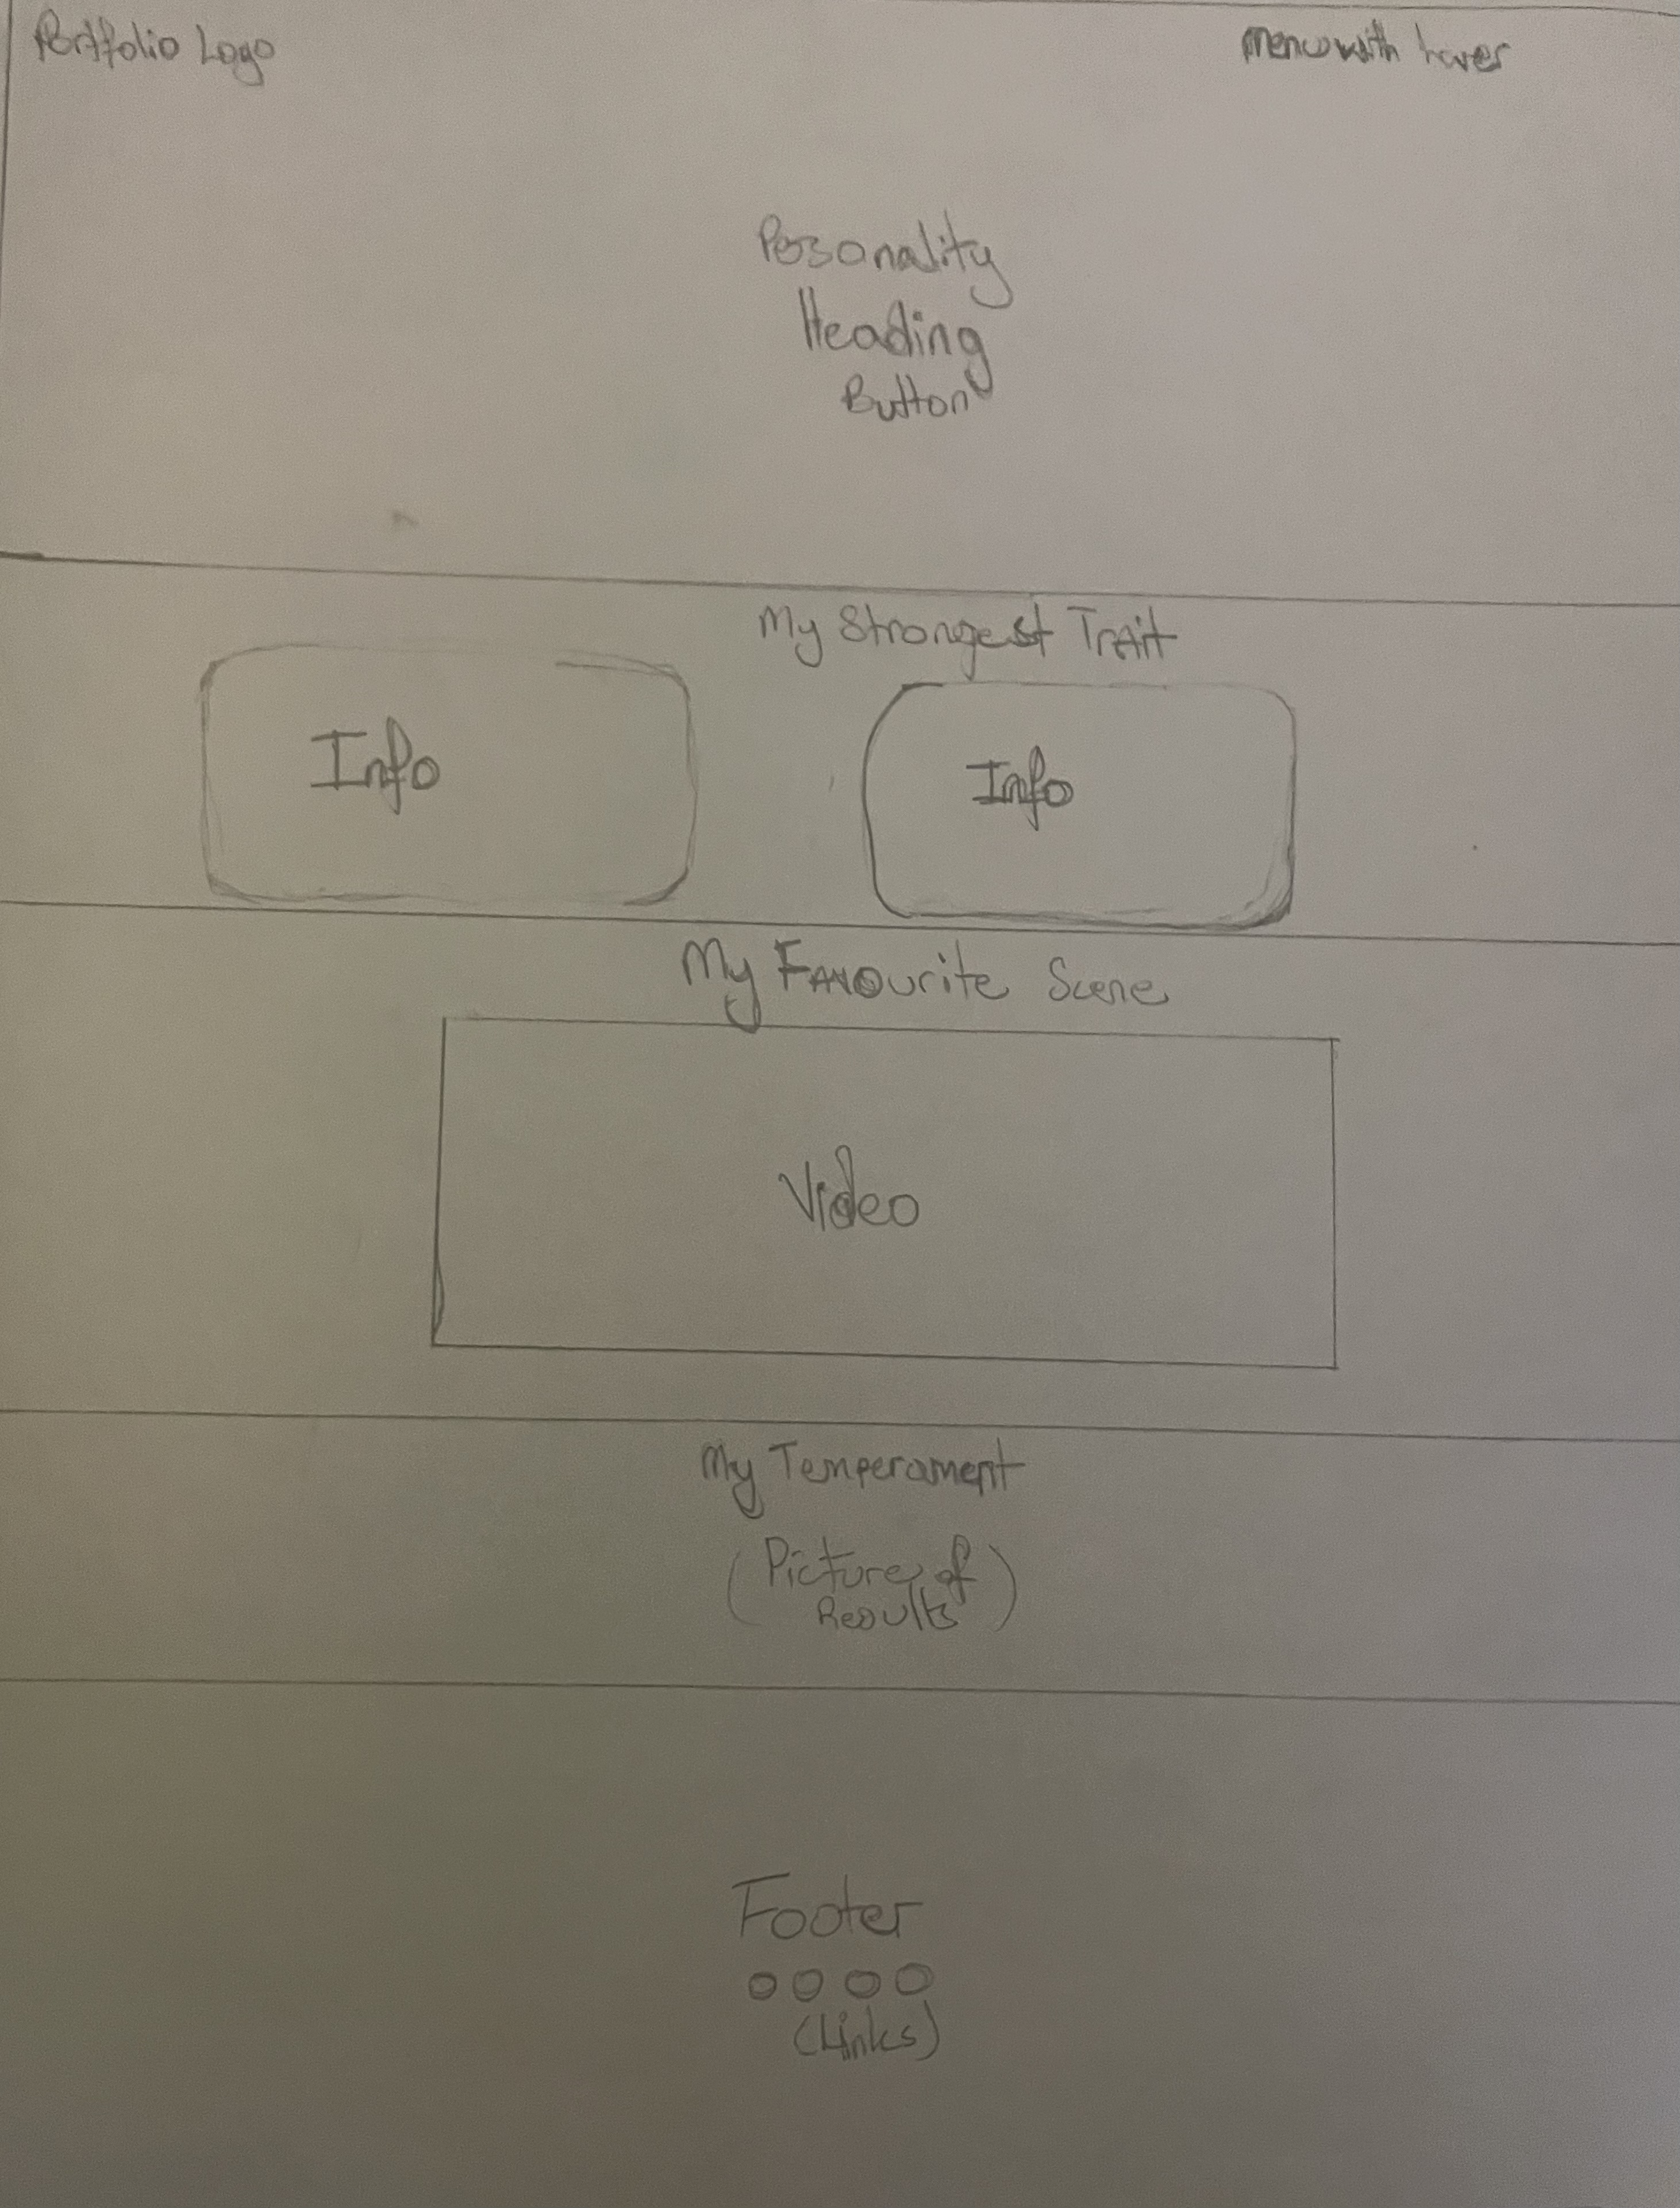 Portfolio Logo
Menu with hover
Pesonality
Heading
Button
My Strongest Trait
Info
Info
My Favourite Scene
Video
My Temperament
(Picture of
Results)
Footer
(Links)